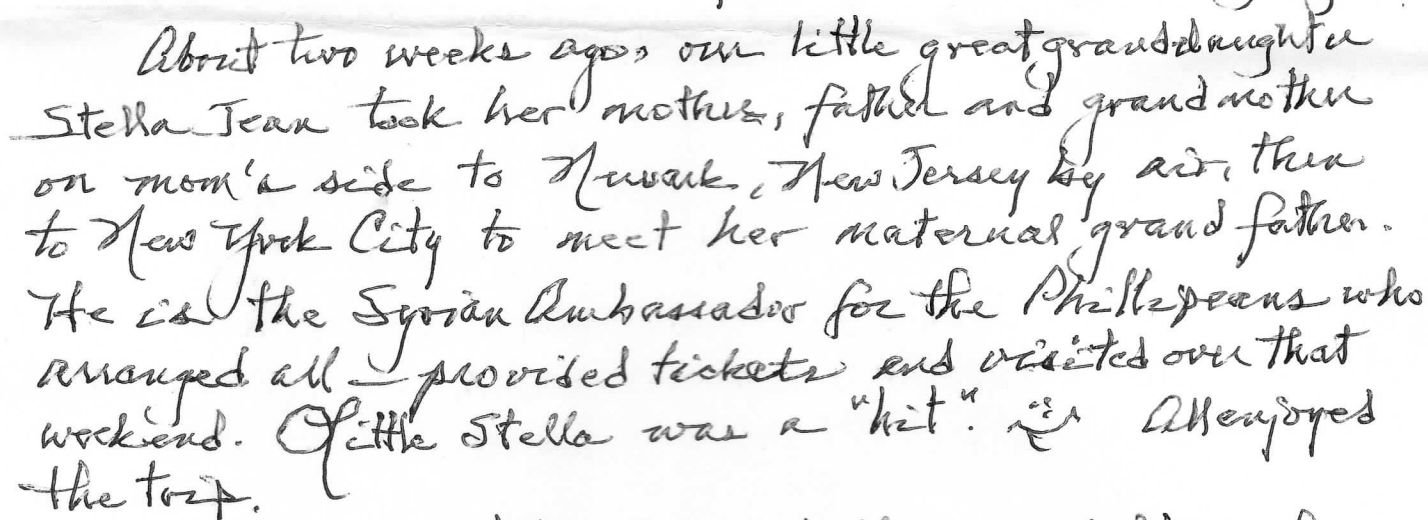 About two weeks ago, our little great granddaughter
Stella Jean took her mother, father and grandmother
on mom's side to Newark, New Jersey by air, then
to New York City to meet her maternal grandfather.
He is the Syrian Ambassador for the Phillipeans who
arranged all – provided tickets and visited over that
weekend. Little Stella was a "hit". All enjoyed
the trip.